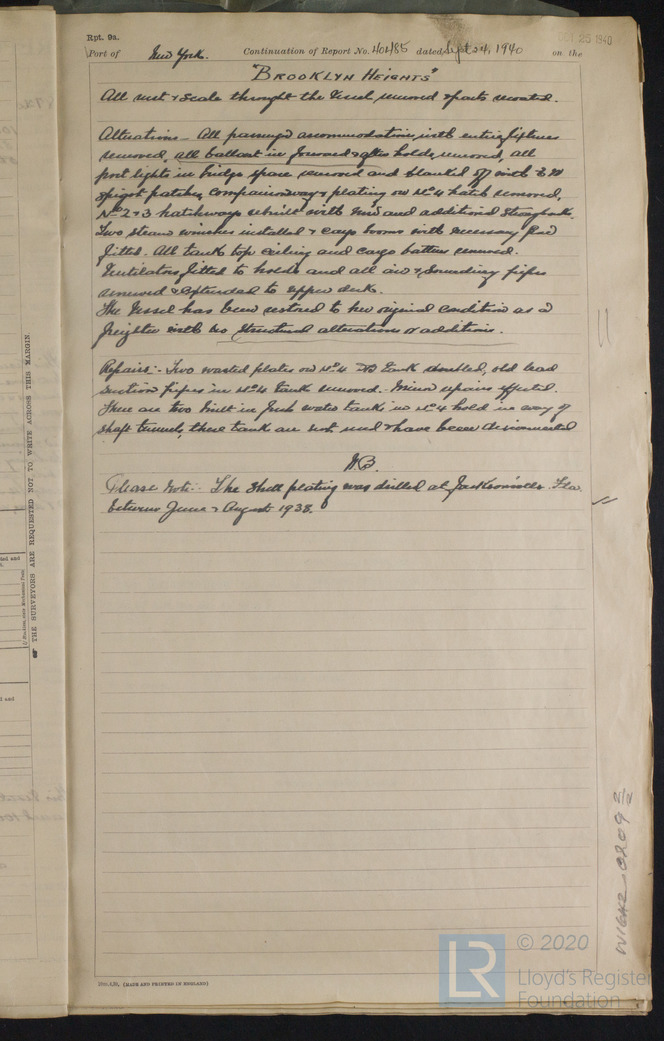 Rpt. 9a.
OCT 25 1940
Port of New York. Continuation of Report No. 40485 dated Sept 24, 1940 on the
"BROOKLYN HEIGHTS"
All rust & scale throught the Vessel removed & parts recoated.
Alterations - All passenger accommodation, with entire fixtures
removed, all ballast in forward & after holds removed, all
port lights in bridge space removed and blanked off with
spigot patches, companionways & plating on No. 4 hatch removed,
No. 2 & 3 hatchways rebuilt with new and additional strongbacks.
Two steam winches installed & cargo booms with necessary gear
fitted. All tank top ceiling and cargo battens renewed.
Ventilators fitted to holds and all air & sounding pipes
renewed & extended to upper deck.
The Vessel has been restored to her original condition as a
freighter with no structural alterations or additions.
Repairs:- Two wasted plates on No. 4 DB tank doubled, old lead
suction pipes in No. 4 tank renewed. Minor repairs effected.
There are two built in fresh water tanks in No. 4 hold in way of
shaft tunnel, these tank are not used & have been disconnected
N.B.
Please note:- The shell plating was drilled at Jacksonville Fla.
between June & August 1938.
THE SURVEYORS ARE REQUESTED NOT TO WRITE ACROSS THIS MARGIN.
(MADE AND PRINTED IN ENGLAND)
W1642-0209 2/2
LR
© 2020
Lloyd's Register
Foundation